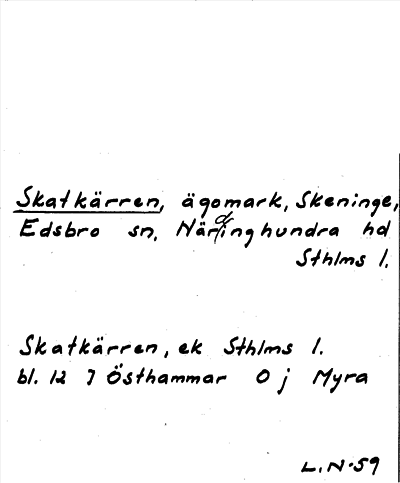 Skatkärren, ägomark, Skeninge,
Edsbro sn. Närdinghundra hd
Sthlms l.
Skatkärren, ek Sthlms l.
bl. 12 I Östhammar O j Myra
L.N-59